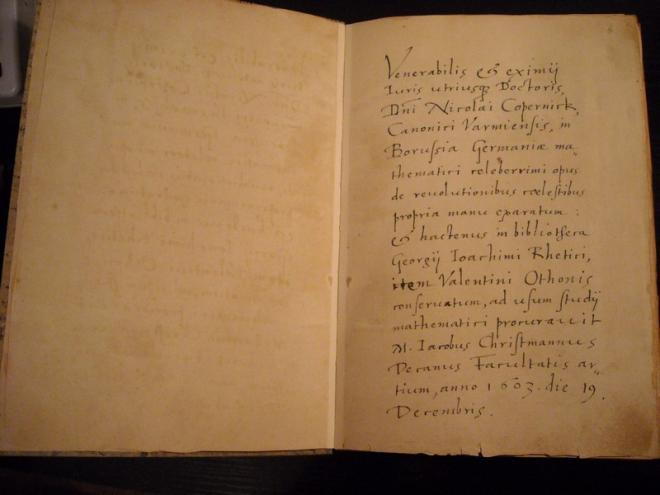 Venerabilis & eximij
Iuris utriusq3 Doctoris,
Dni Nicolai Copernick,
Canonici Varmiensis, in
Borussia Germaniæ ma„
thematici celeberrimi opus
de reuolutionibus cœlestibus
propria manu exaratum :
& hactenus in bibliotheca
Georgij Ioachimi Rhetici,
item Valentini Othonis
conseruatum, ad usum studij
mathematici procurauit
M. Iacobus Christmannus
Decanus Facultatis ar„
tium, anno 1603. die 19.
Decembris.